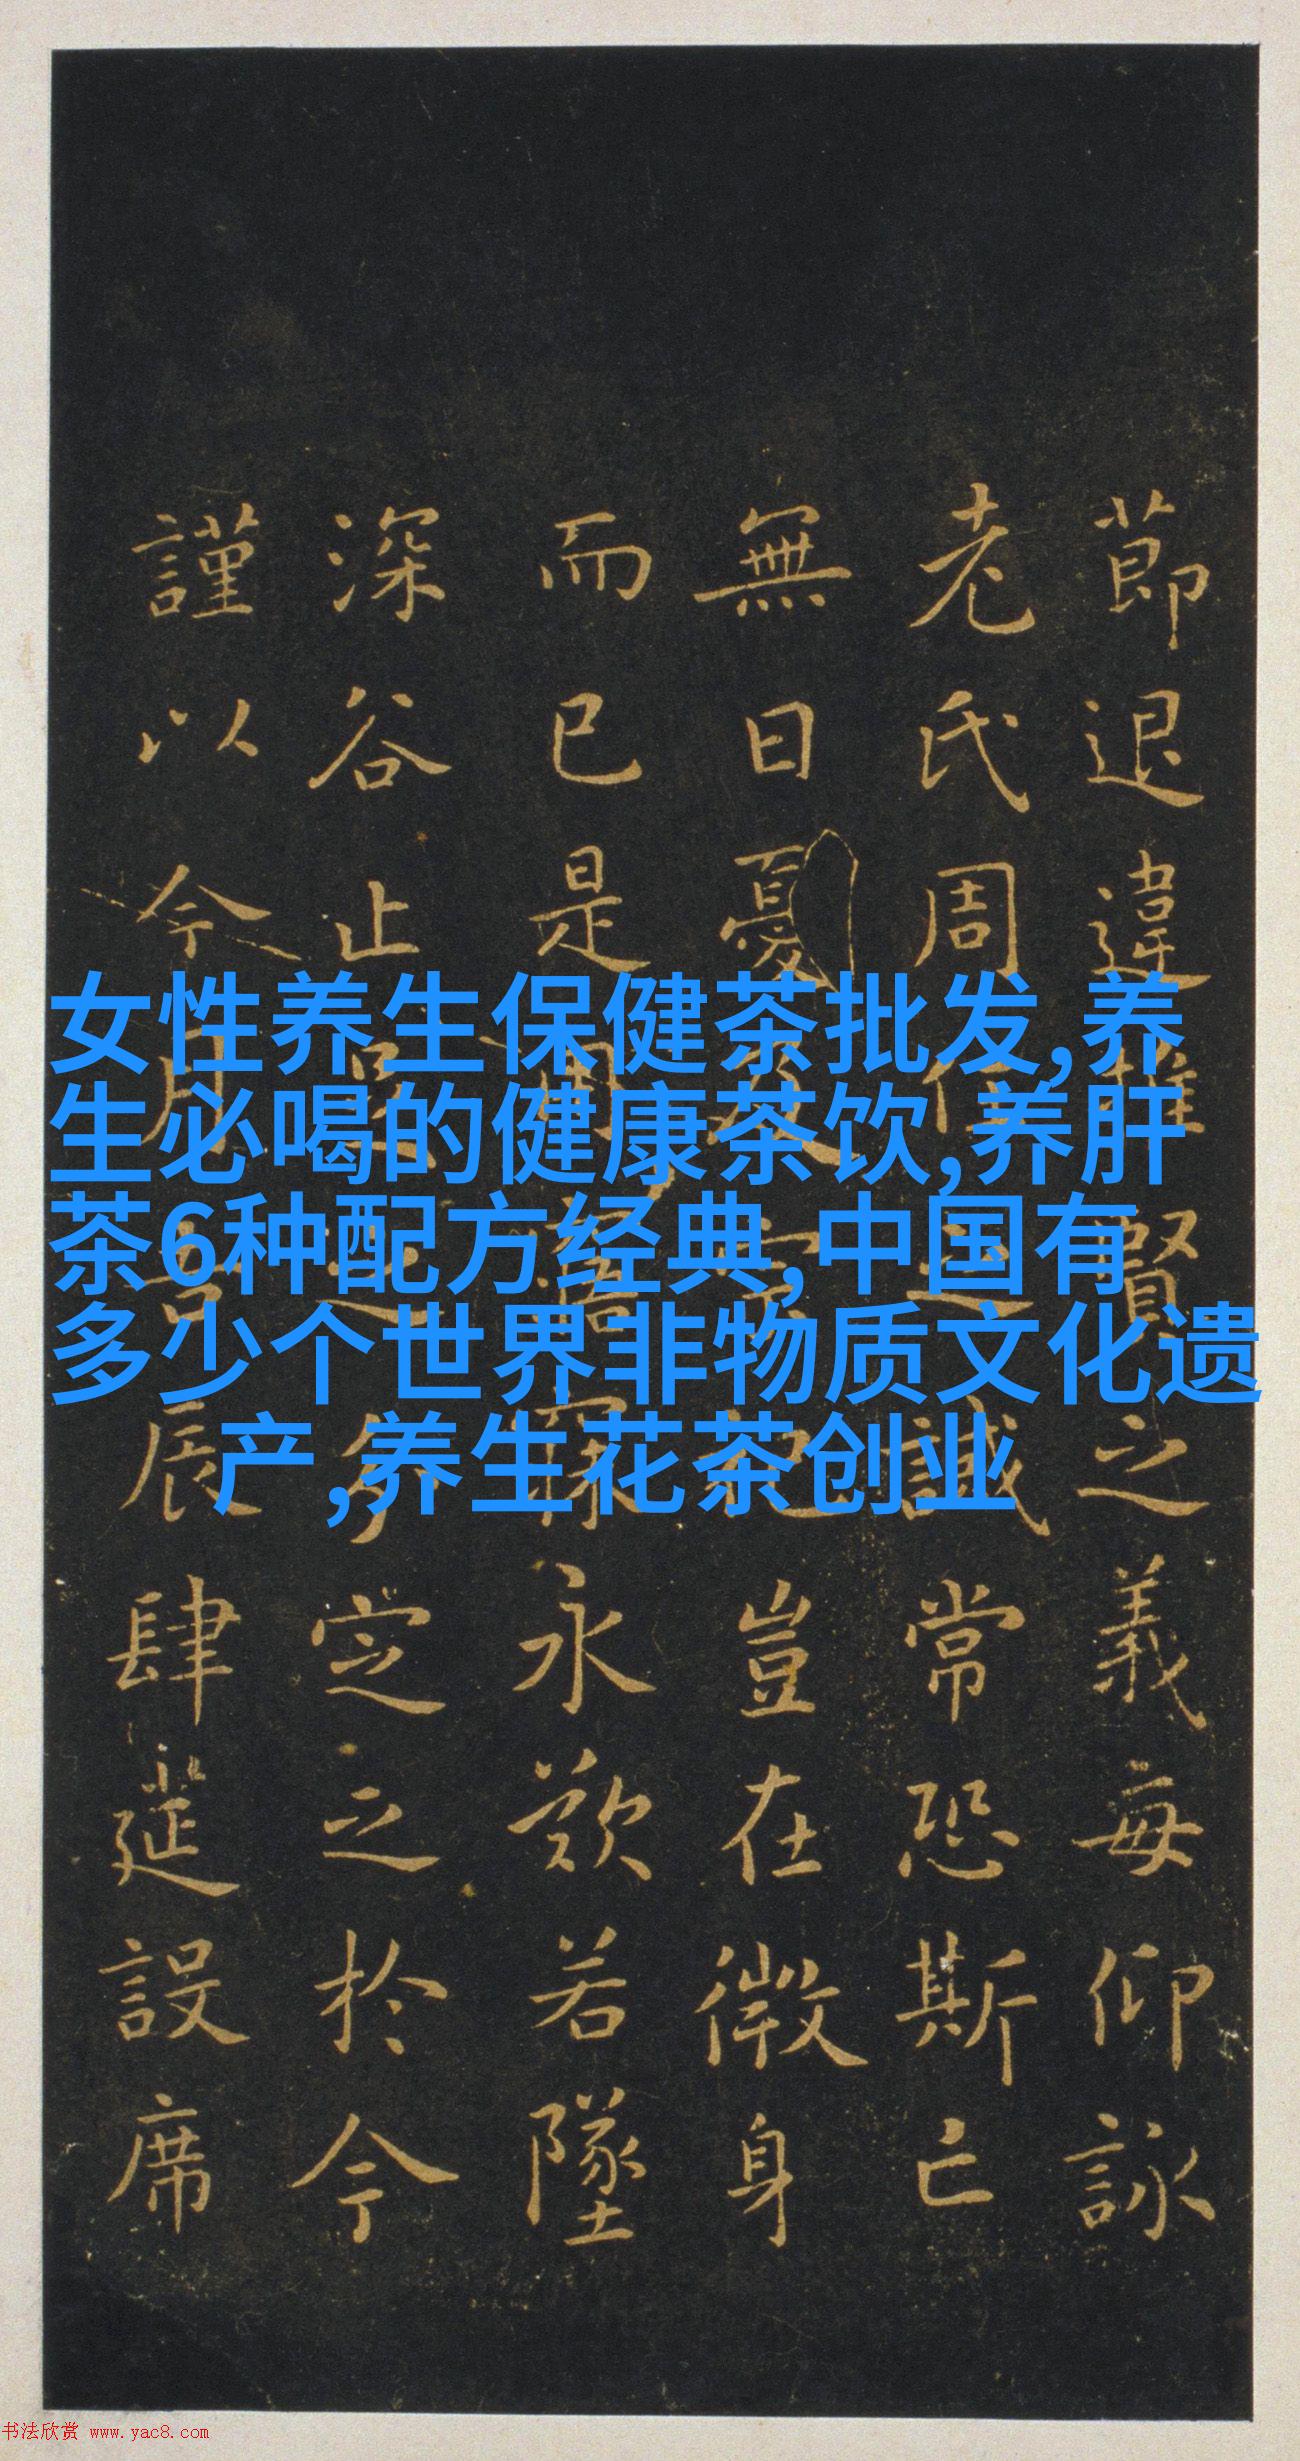 莭退違推賢之義每仰詠
老氏周任之誡常恐斯亡
無日憂及宗祀豈在微身
而已是用寤寐永歎若墜
深谷止足之分定之於今
謹以今月吉辰肆莚設席
女性养生保健茶批发,养
生必喝的健康茶饮,养肝
茶6种配方经典,中国有
多少个世界非物质文化遗
产,养生花茶创业
书法欣赏 www.yac8.com